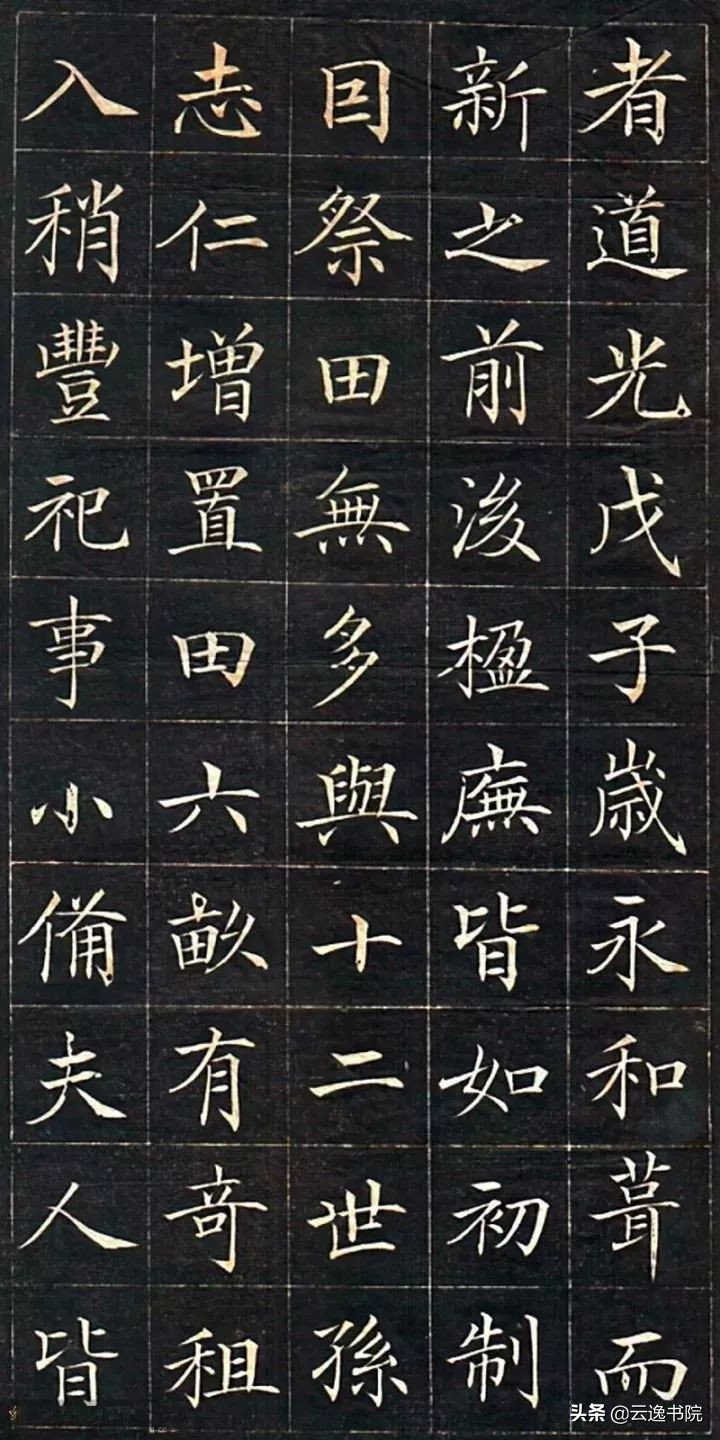 者道光戊子嵗永和葺而
新之前後楹廡皆如初制
囙祭田無多與十二世孫
志仁增置田六畝有奇租
入稍豐祀事小俻夫人皆
头条@云逸书院